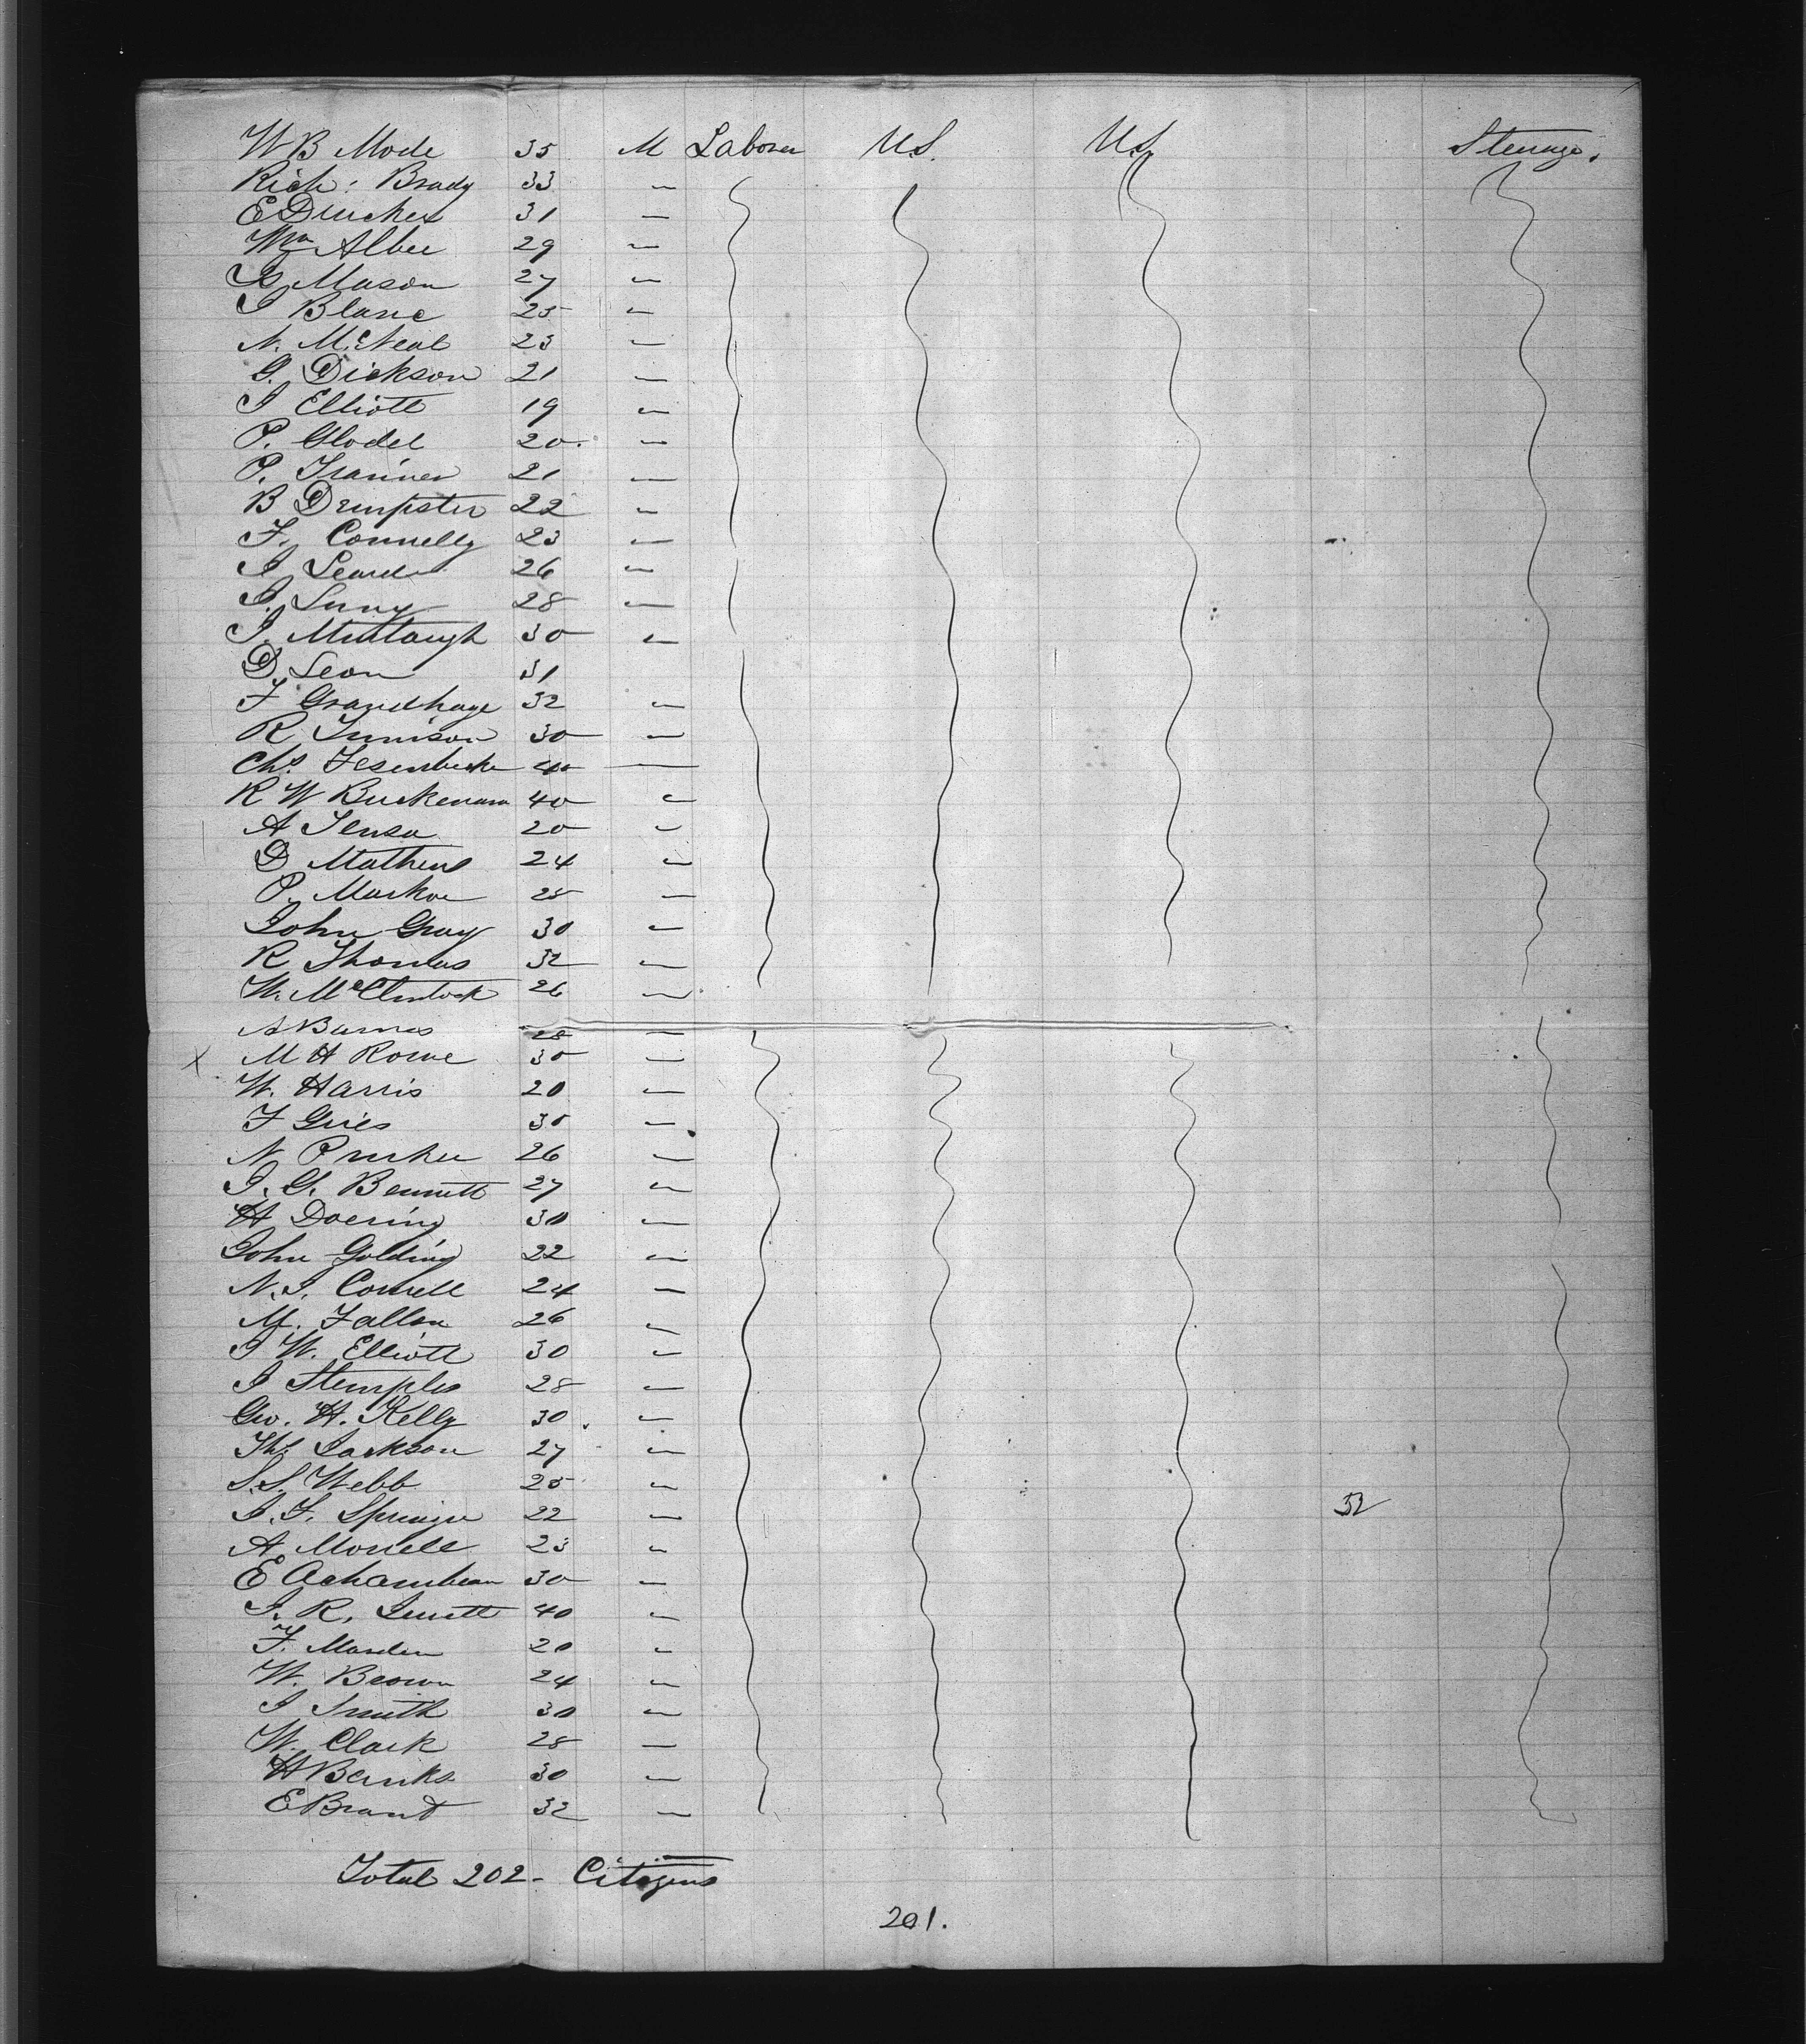 W B Mode 35 M Laborer U.S. U.S. Steerage.
Rich: Brady 33 —
E Drucker 31 —
Wm Albee 29 —
G Mason 27 —
J Blanc 25 —
N. McNeal 23 —
G. Dickson 21 —
J Elliott 19 —
P. Glodel 20. —
P. 21 —
B Dempster 22 —
F. Connelly 23 —
J 26 —
J. 28 —
J. Murtaugh 30 —
D. Leon 31
F Grandhage 32 —
R Jimison 30 —
Chs. 40 —
R W 40 —
A 20 —
D. Mathews 24 —
P. Markoe 28 —
John Gray 30 —
R Thomas 32 —
W. McClintock 26 —
A Burns 28 —
X M H Rowe 30 —
W. Harris 20 —
F Gries 30 —
N 26 —
J. G. Bennett 27 —
H Doering 30 —
John Golding 22 —
N. J. Cornell 24 —
M. Fallon 26 —
J W. Elliott 30 —
J Stemples 28 —
Geo. H. Kelly 30. —
Ths. Jackson 27 —
S. S. Webb 25 —
J. F. Springer 22 — 52
A Morrell 23 —
E Achambeau 30 —
J. R. 40 —
F. Marden 20 —
W. Brown 24 —
J Smith 30 —
W. Clark 28 —
H Banks 30 —
E Brant 32 —
Total 202 - Citizens
201.